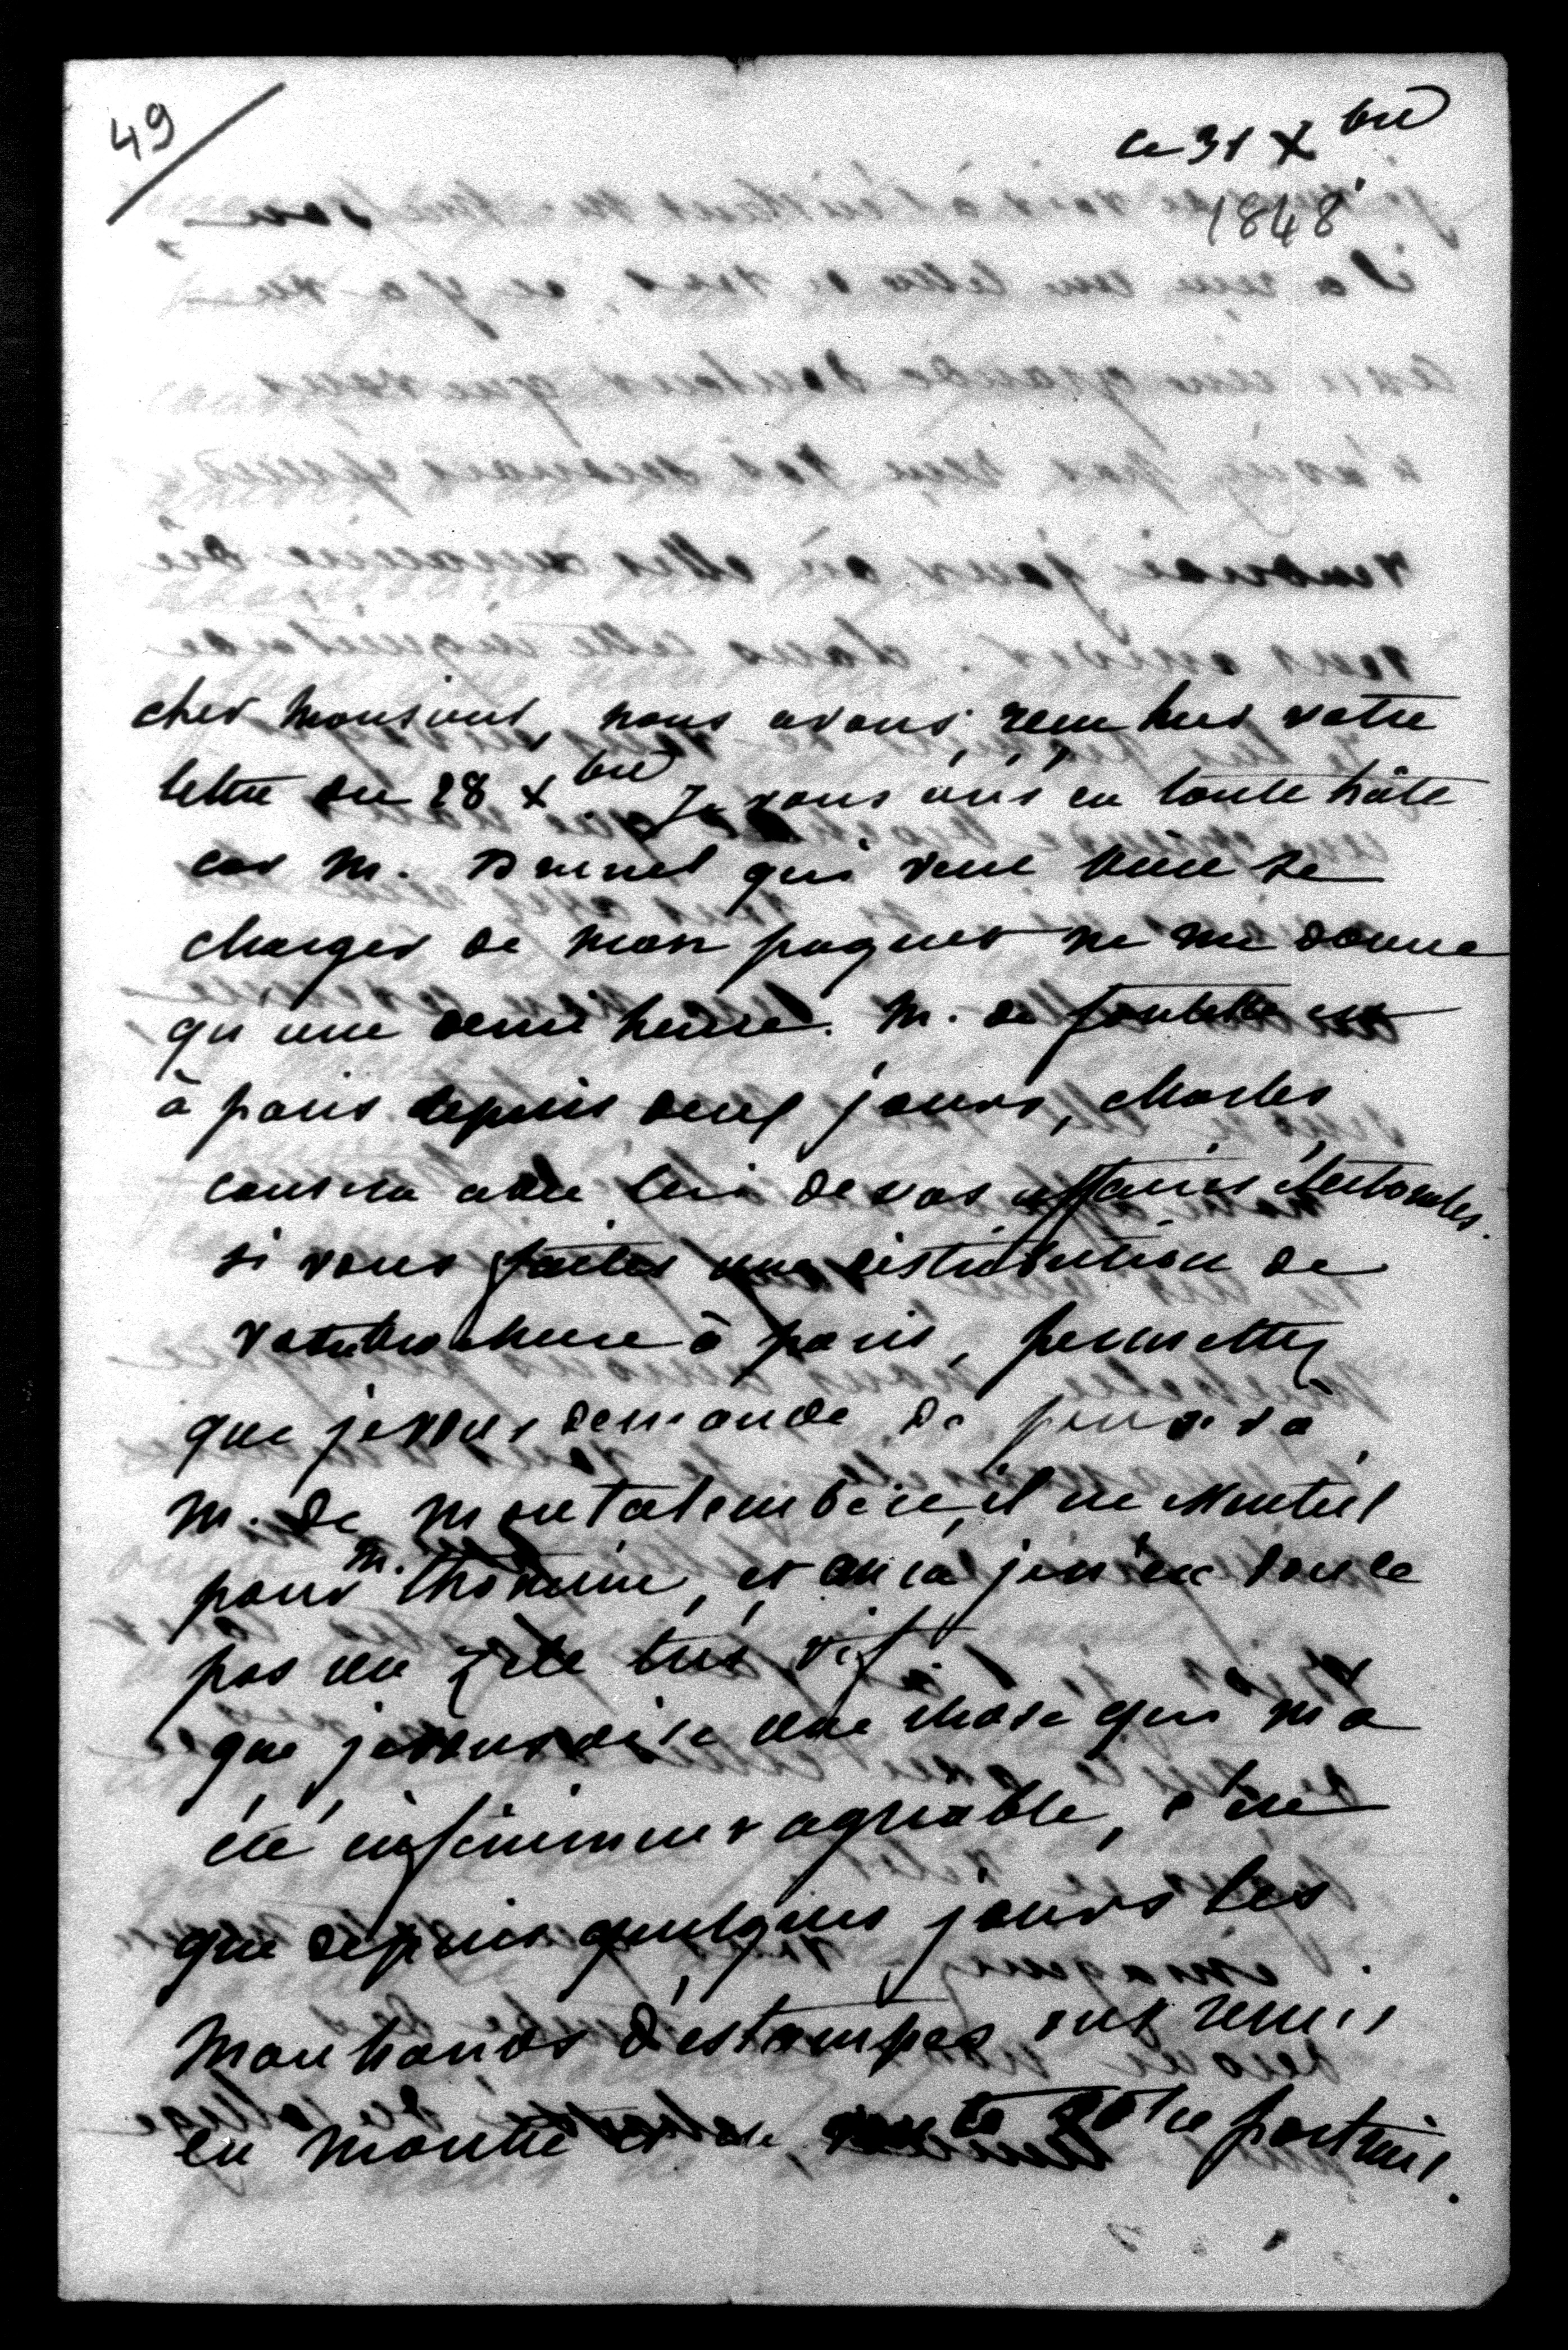 49
ce 31 Xbre
1848
cher monsieur, nous avons reçu hier votre
lettre du 28 Xbre Je vous écris en toute hâte
car M. Brunel qui veut bien se
charger de mon paquet ne me donne
qu'une demi heure. M. de
à paris depuis deux jours, charles
causera avec lui de vos affaires électorales.
si vous faites une distribution de
votre brochure à paris, permettez
que je vous demande de penser à
M. de Montalembert, il ne
pour M. et en cela je n'en doute
pas un zèle très vif
que je vous dise une chose qui m'a
été infiniment agréable, c'est
que depuis quelques jours les
marchands d'estampes ont remis
en montre votre portrait.